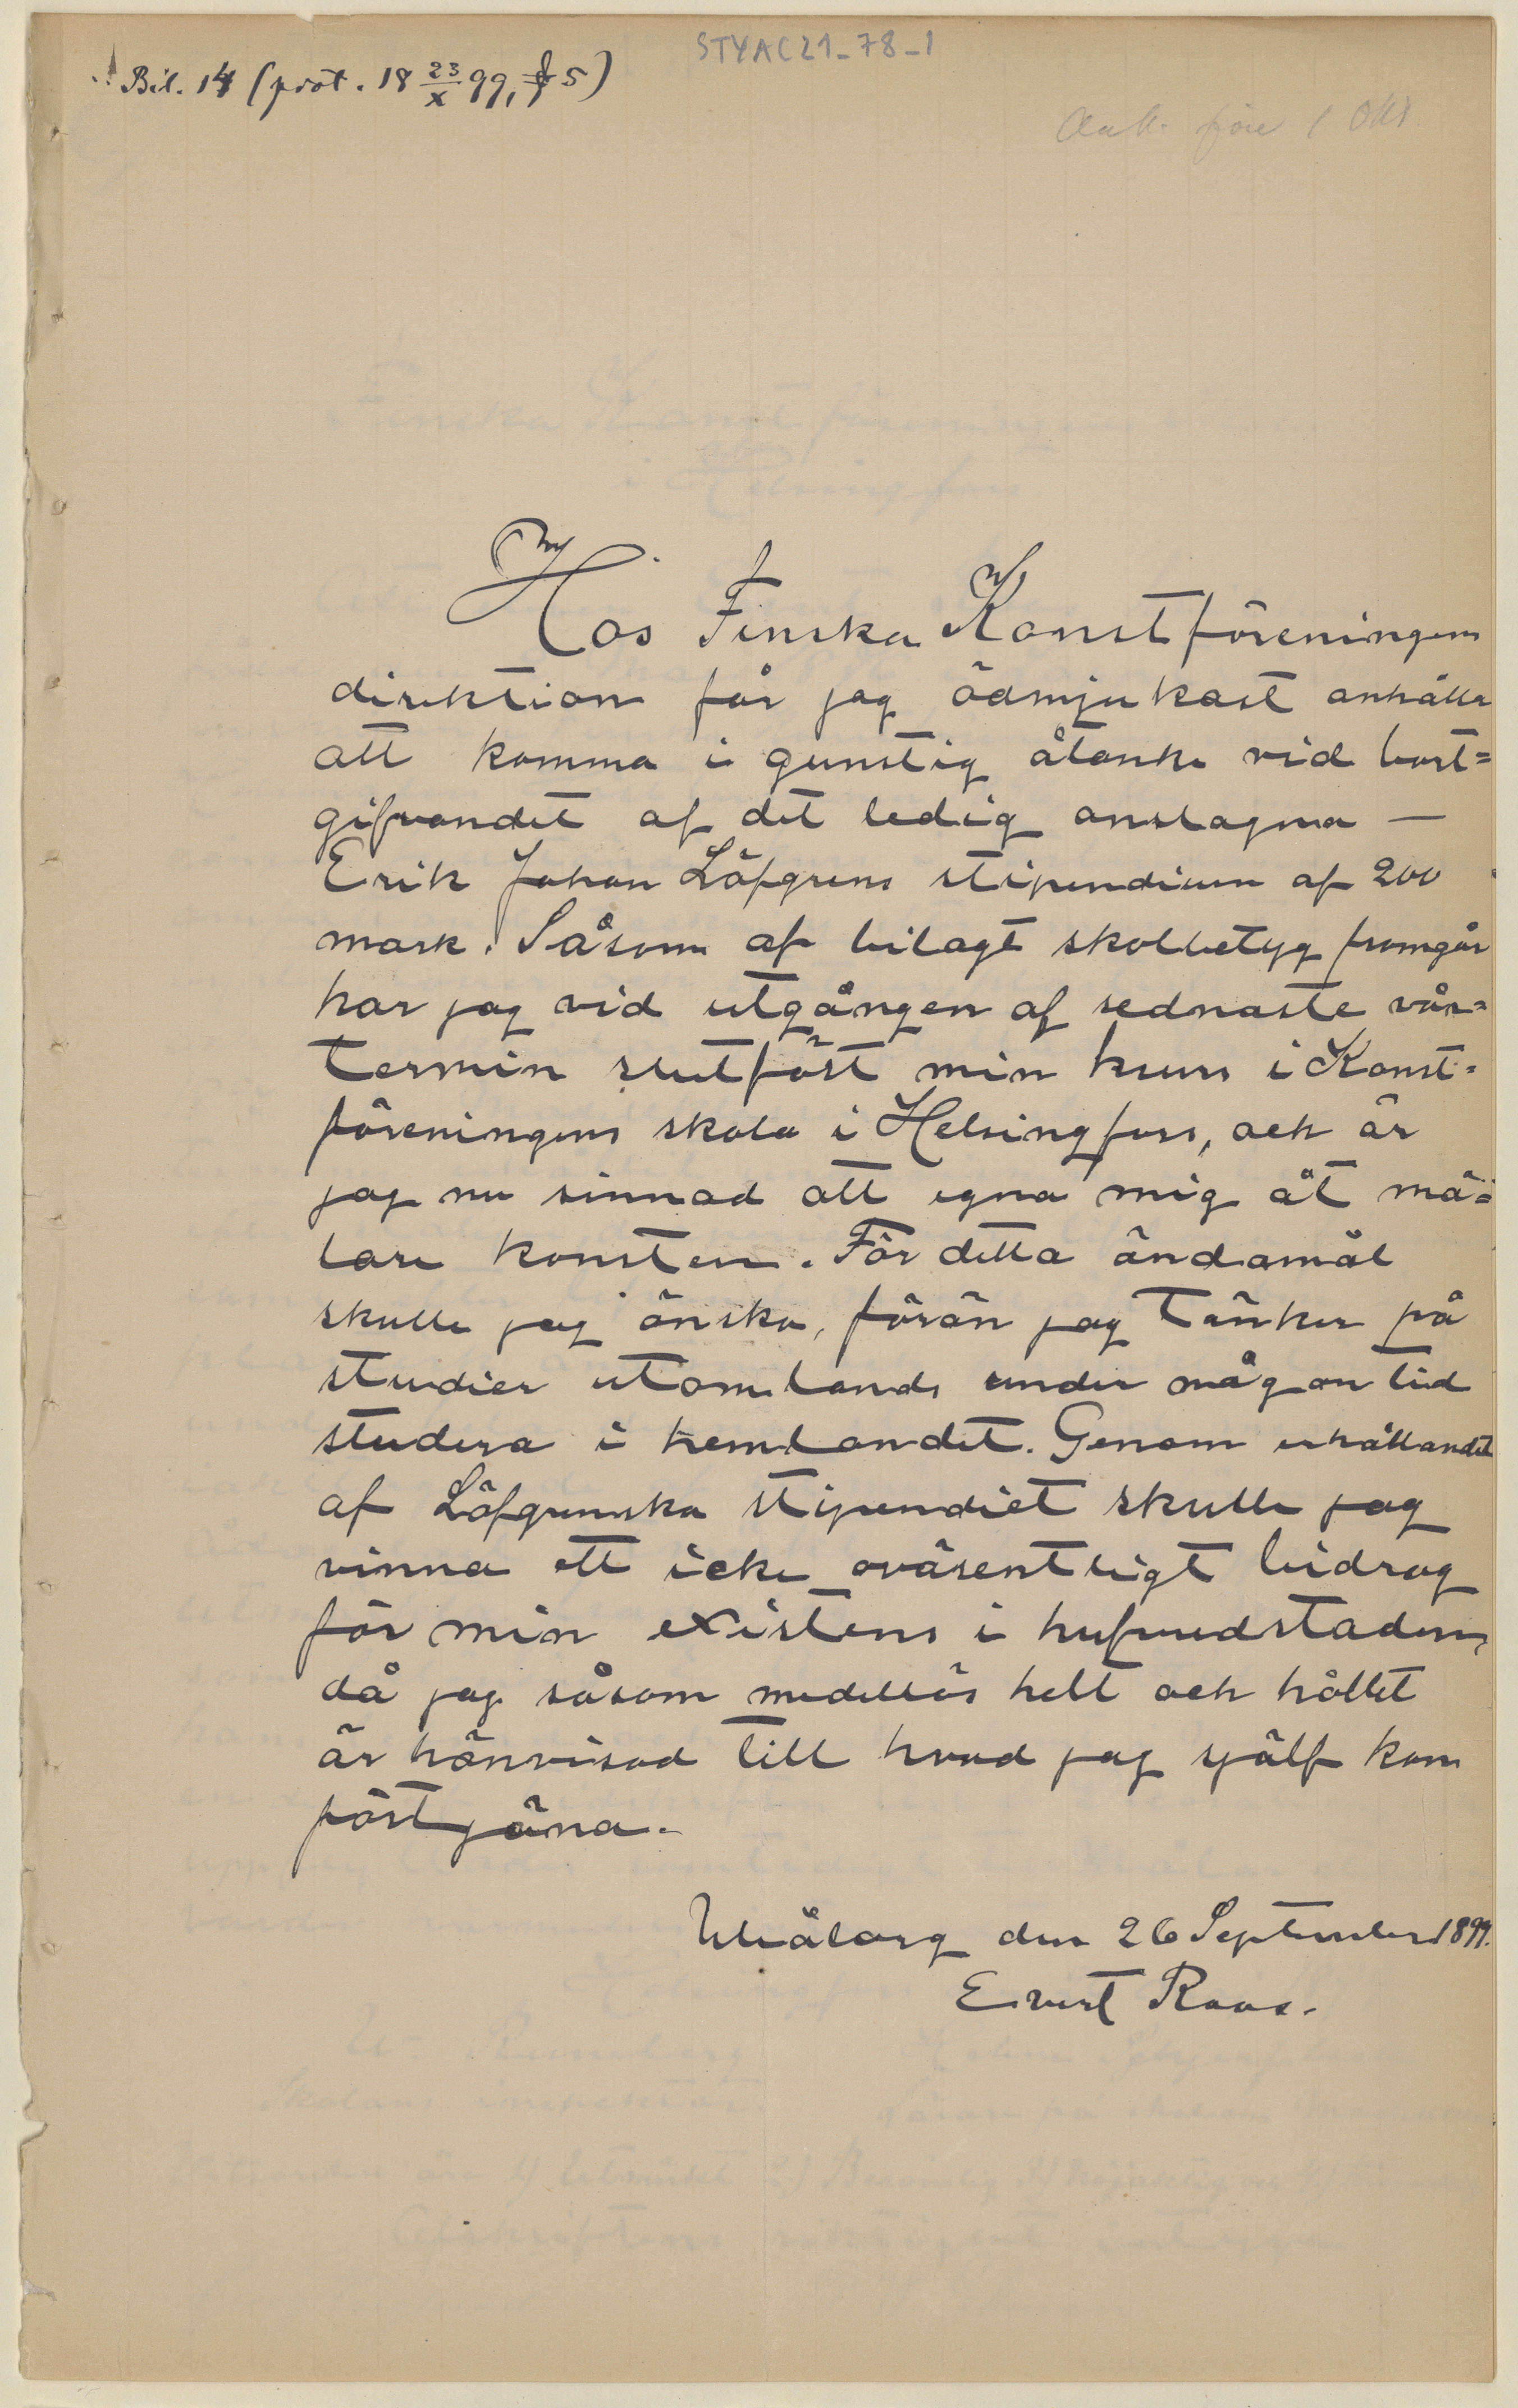 STYAC21_78_1
Bil. 14 (prot. 18 23/X 99, § 5)
före 1 Okt
Hos Finska Konstföreningens
direktion får jag ödmjukast anhålla
att komma i gunstig åtanke vid bort=
gifvandet af det ledig anslagna —
Erik Johan Löfgrens stipendium af 200
mark. Såsom af bilagt skolbetyg framgår
har jag vid utgången af sednaste vår=
termin slutfört min kurs i Konst=
föreningens skola i Helsingfors, och är
jag nu sinnad att egna mig åt må=
lare konsten. För detta ändamål
skulle jag önska, förän jag tänker på
studier utomlands under någon tid
studera i hemlandet. Genom erhållandet
af Löfgrenska stipendiet skulle jag
vinna ett icke oväsentligt bidrag
för min existens i hufvudstaden,
då jag såsom medellös helt och hållet
är hänvisad till hvad jag sjālf kan
förtjäna.
Uleåborg den 26 September 1899.
Evert Raas.